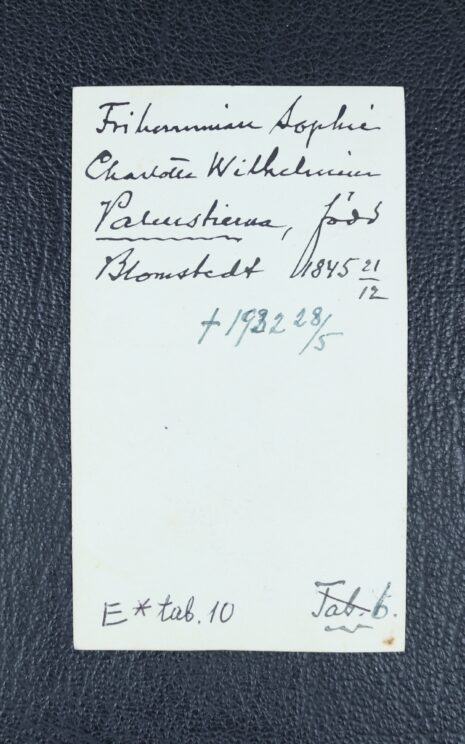 Friherrinnan Sophie
Charlotte Wilhelmina
Palmstierna, född
Blomstedt 1845 21/12
† 1932 28/5
E * tab. 10
Tab. 6.